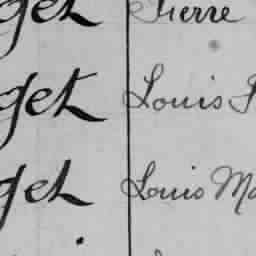 get Pierre
get Louis
get Louis